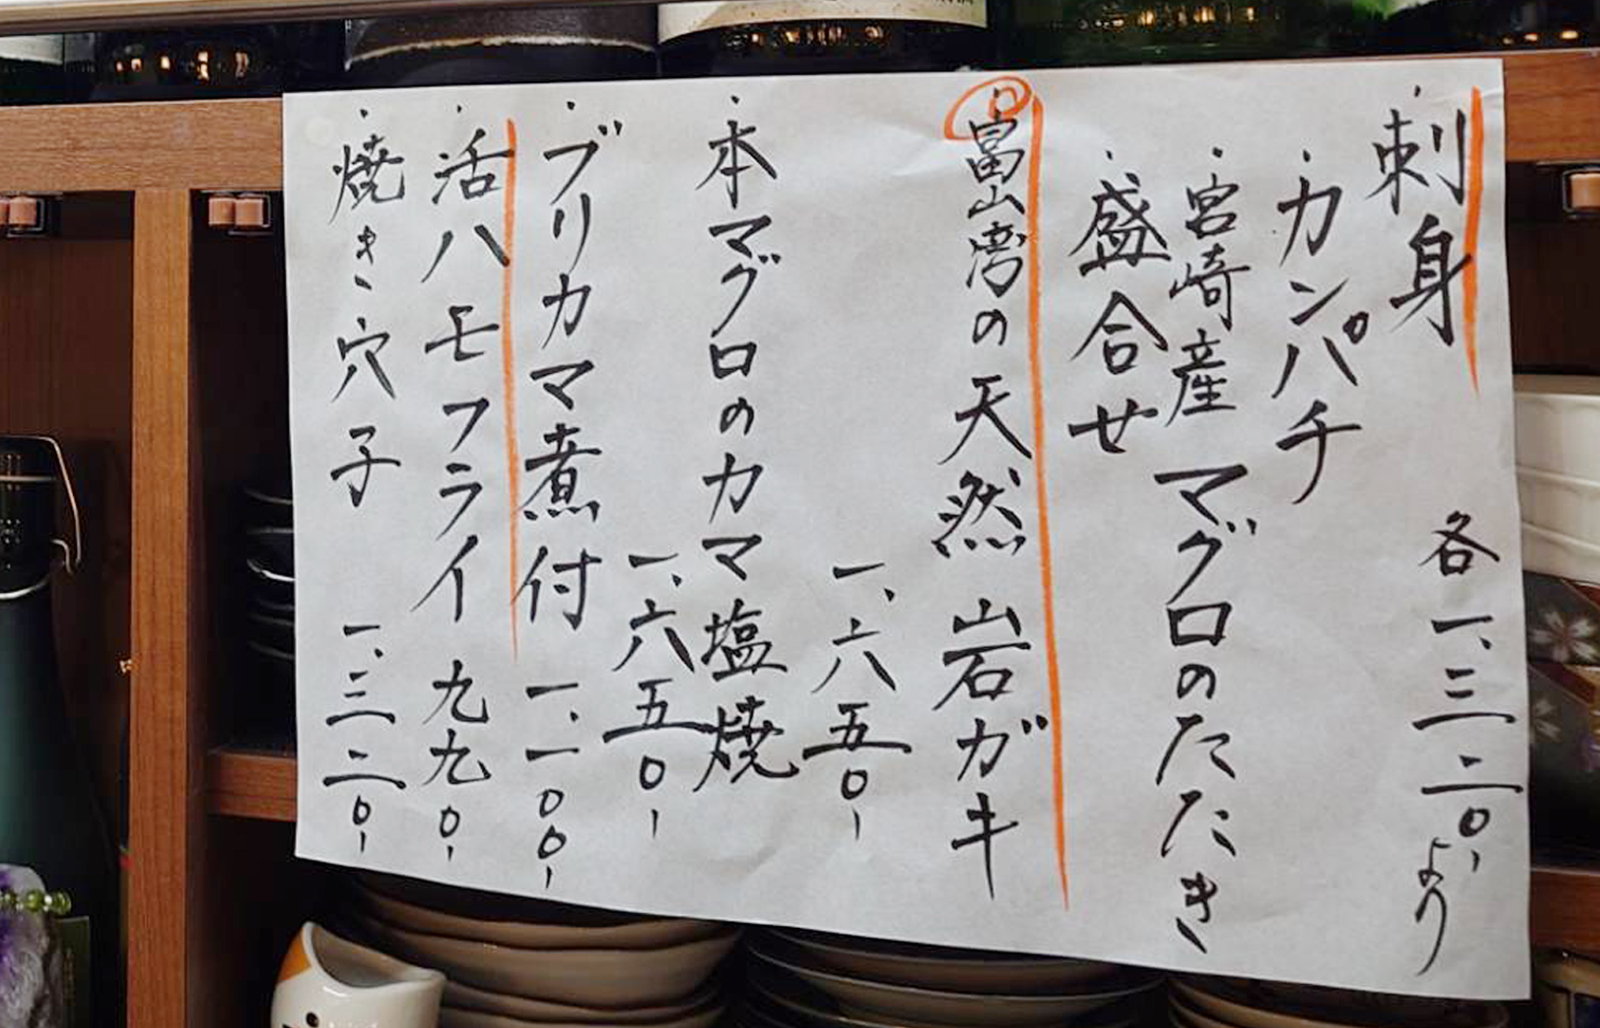 ・刺身 各一、三二〇-より
・カンパチ
・宮崎産マグロのたたき
・盛合せ
・富山湾の天然岩ガキ
一、六五〇-
・本マグロのカマ塩焼
一、六五〇-
・ブリカマ煮付 一、一〇〇-
・活ハモフライ 九九〇-
・焼き穴子 一、三二〇-